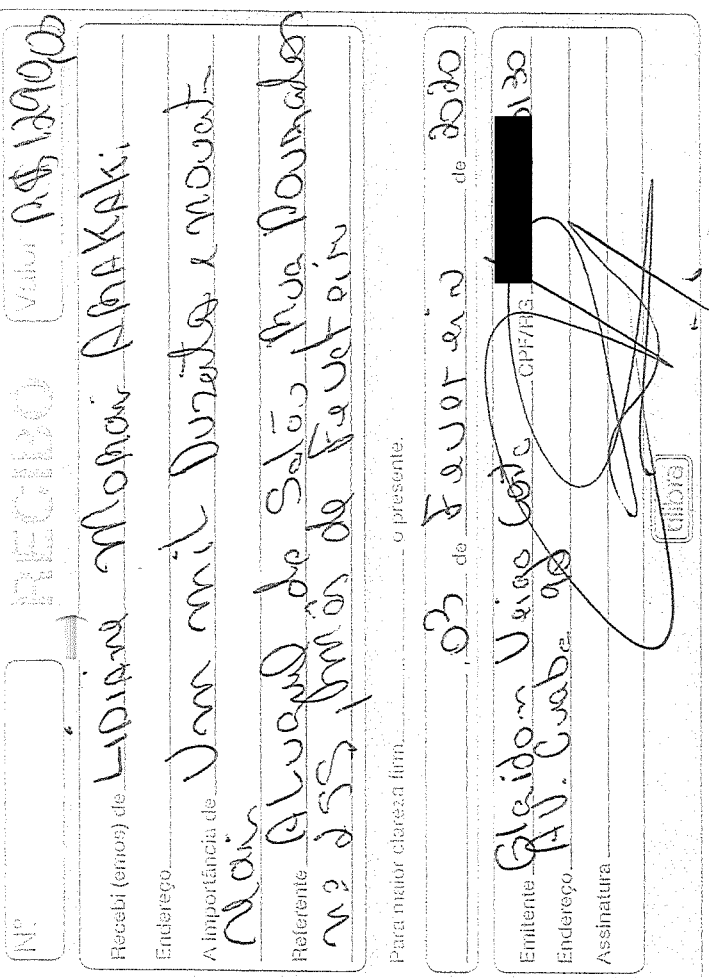 Nº
RECIBO
Valor R$ 1290,00
Recebi (emos) de Lidiane
Endereço
A importância de Um mil Duzentos e novent
Reais
Referente Aluguel de Salão Rua Dourados
nº 255, mês de Fevereiro
Para maior clareza firm o presente.
03 de Fevereiro de 2020
Emitente CPF/RG 0130
Endereço AV. Cuiabá
Assinatura
tilibra